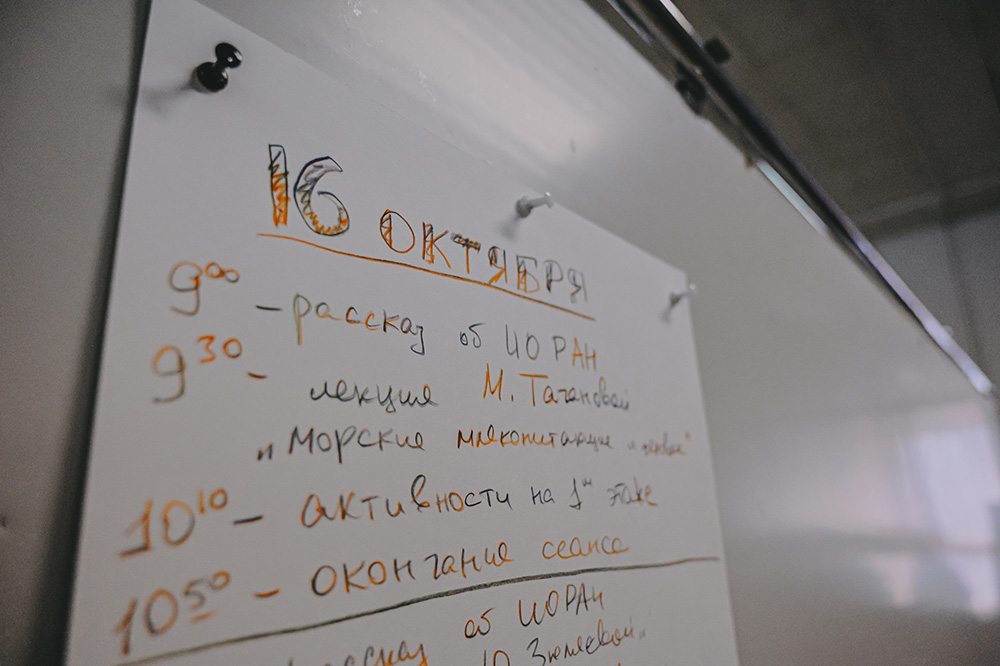 16 ОКТЯБРЯ
9⁰⁰ – рассказ об ИО РАН
9³⁰ – лекция М. Тагановой
"Морские млекопитающие и
10¹⁰ – активности на 1ᵒᵐ этаже
10⁵⁰ – окончание сеанса
рассказ об ИО РАН
Ю Зюлевой